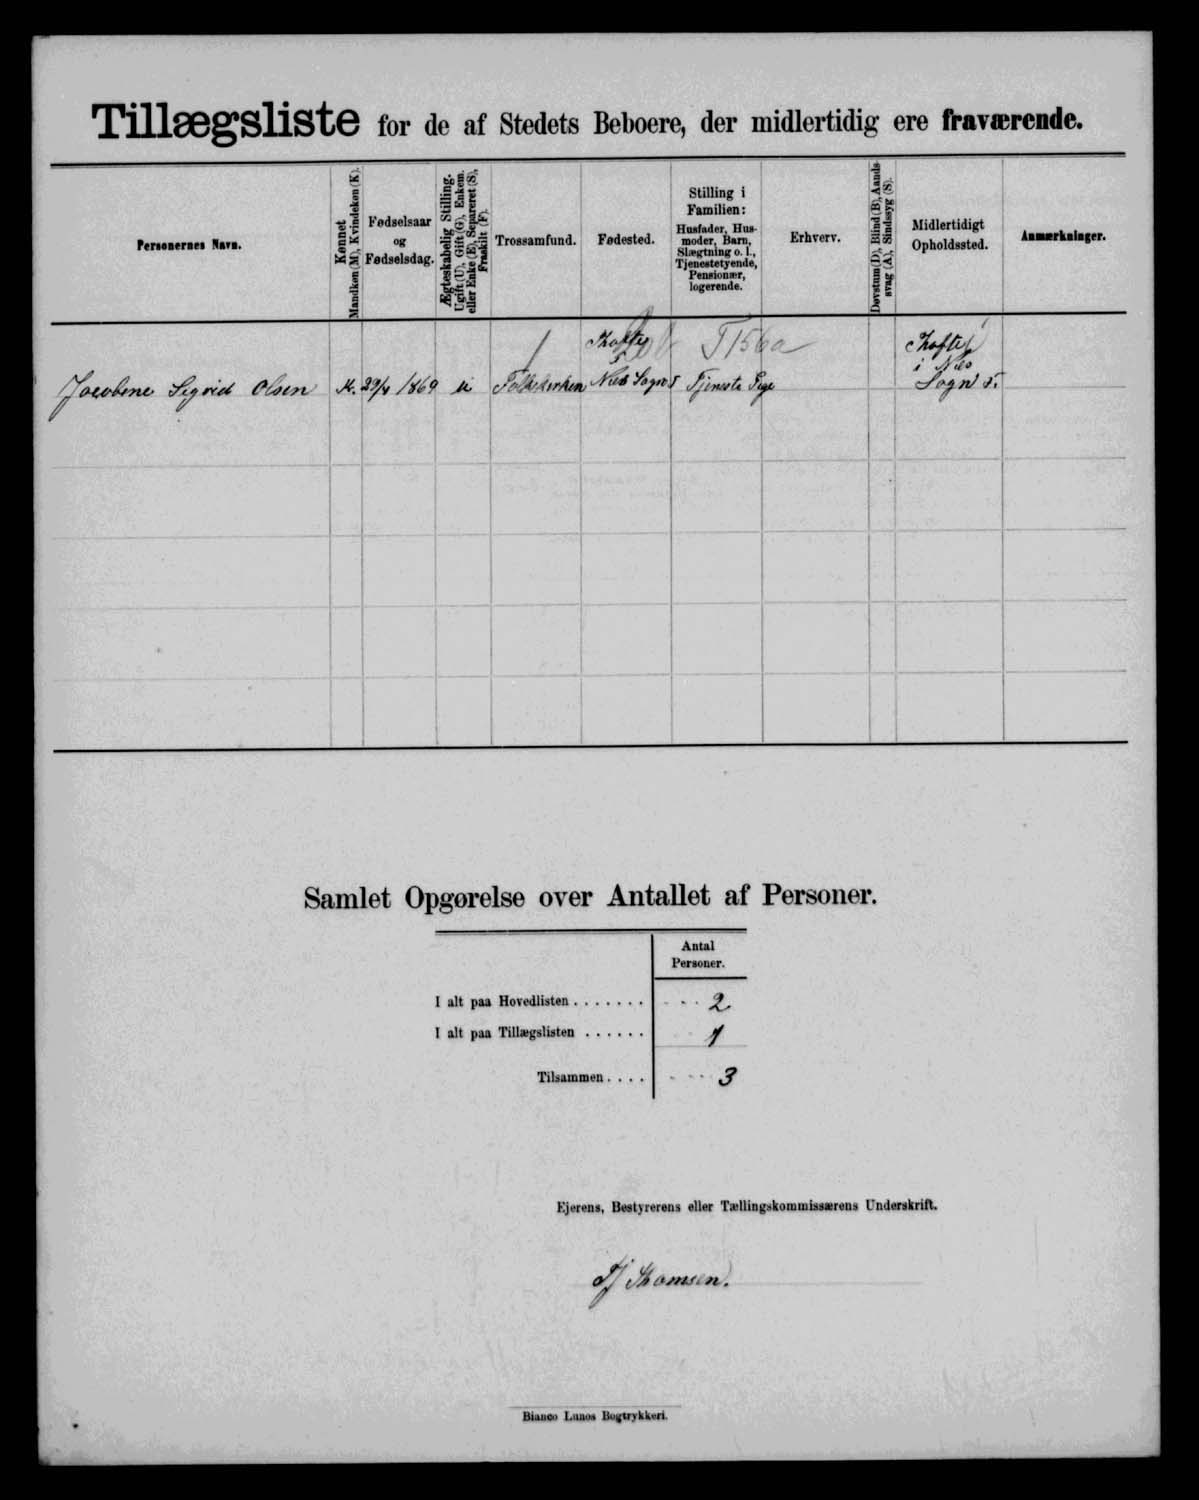 Tillægsliste for de af Stedets Beboere, der midlertidig ere fraværende.
Personernes Navn.
Kønnet
Mandkøn (M), Kvindekøn (K).
Fødselsaar
og
Fødselsdag.
Ægteskabelig Stilling.
Ugift (U), Gift (G), Enkem.
eller Enke (E), Separeret (S),
Fraskilt (F).
Trossamfund.
Fødested.
Stilling i
Familien:
Husfader, Hus-
moder, Barn,
Slægtning o. l.,
Tjenestetyende,
Pensionær,
logerende.
Erhverv.
Døvstum (D), Blind (B), Aands-
svag (A), Sindssyg (S).
Midlertidigt
Opholdssted.
Anmærkninger.
T 156a
Jacobine Sigrid Olsen
29/4 1869
u
Folkekirken
Sogn
Tjeneste Pige
i
Sogn
Samlet Opgørelse over Antallet af Personer.
Antal
Personer.
I alt paa Hovedlisten . . . . . . . 2
I alt paa Tillægslisten . . . . . . 1
Tilsammen . . . . 3
Ejerens, Bestyrerens eller Tællingskommissærens Underskrift.
Thomsen.
Bianco Lunos Bogtrykkeri.